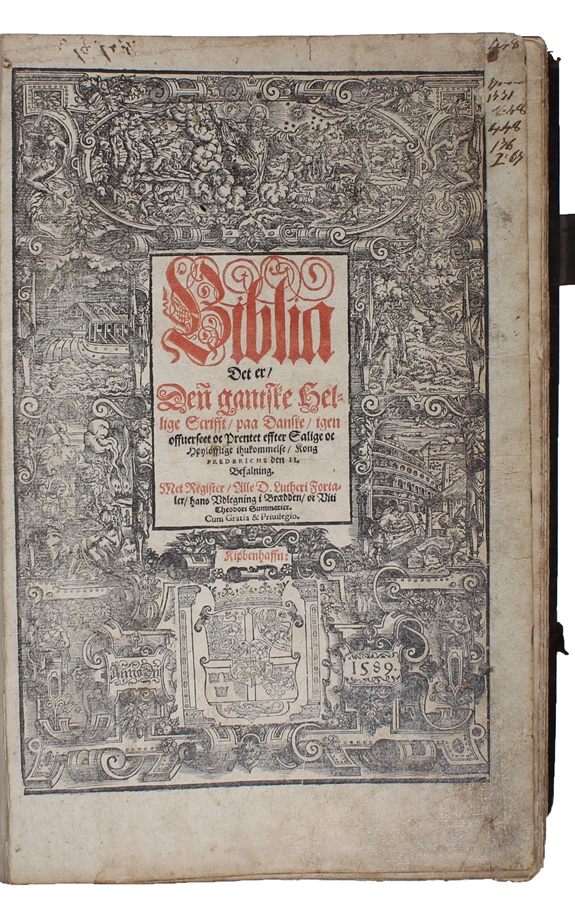 548
1331
448
136
Biblia
Det er/
Den̄ gantske Hel-
lige Scrifft/ paa Danske/ igen
offuerseet oc Prentet effter Salige oc
Høylofflige ihukommelse/ Kong
FREDERICHS den II.
Befalning.
Met Register/ Alle D. Lutheri Forta-
ler/ hans Vdlegning i Brædden/ oc Viti
Theodori Summarier.
Cum Gratia & Priuilegio.
Kiøbenhaffn:
Anno D.
1589.